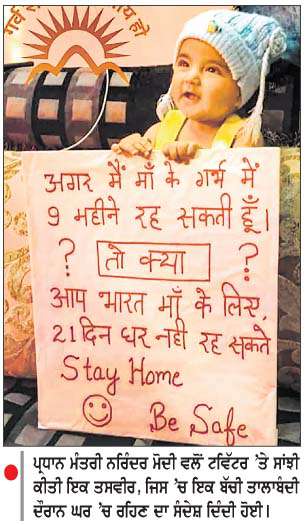 अगर मैं माँ के गर्भ में
9 महीने रह सकती हूँ।
? तो क्या ?
आप भारत माँ के लिए,
21 दिन घर नही रह सकते
Stay Home
Be Safe
ਪ੍ਰਧਾਨ ਮੰਤਰੀ ਨਰਿੰਦਰ ਮੋਦੀ ਵਲੋਂ ਟਵਿੱਟਰ ’ਤੇ ਸਾਂਝੀ
ਕੀਤੀ ਇਕ ਤਸਵੀਰ, ਜਿਸ ’ਚ ਇਕ ਬੱਚੀ ਤਾਲਾਬੰਦੀ
ਦੌਰਾਨ ਘਰ ’ਚ ਰਹਿਣ ਦਾ ਸੰਦੇਸ਼ ਦਿੰਦੀ ਹੋਈ।